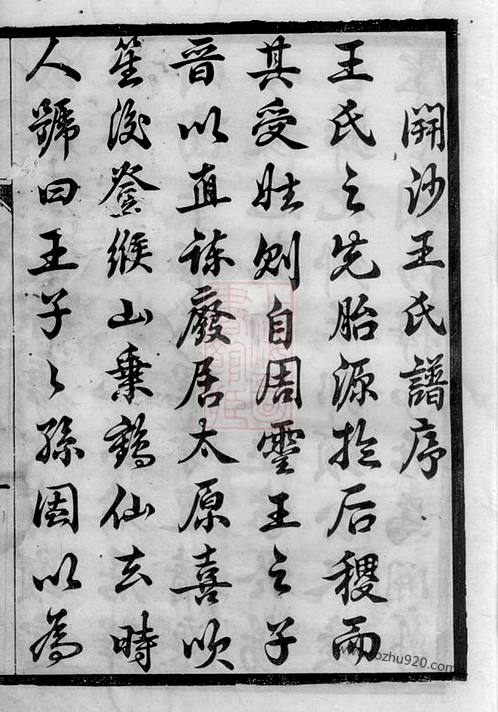 開沙王氏譜序
王氏之先胎源於后稷而
其受姓則自周靈王之子
晉以直諫廢居太原喜吹
笙後登緱山乗鶴仙去時
人號曰王子〻孫因以為
zhu920.com